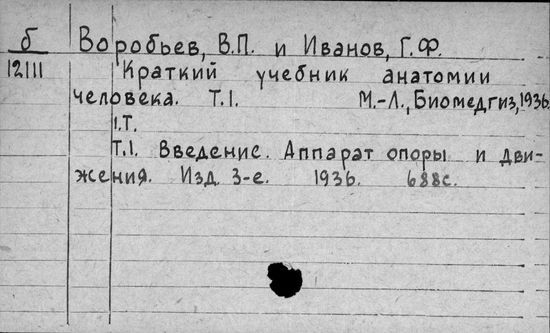 б Воробьев, В.П. и Иванов, Г.Ф.
12111 Краткий учебник анатомии
человека. Т.1. М.-Л., Биомедгиз, 1936.
1.Т.
Т.1. Введение. Аппарат опоры и дви-
жения. Изд. 3-е. 1936. 688с.